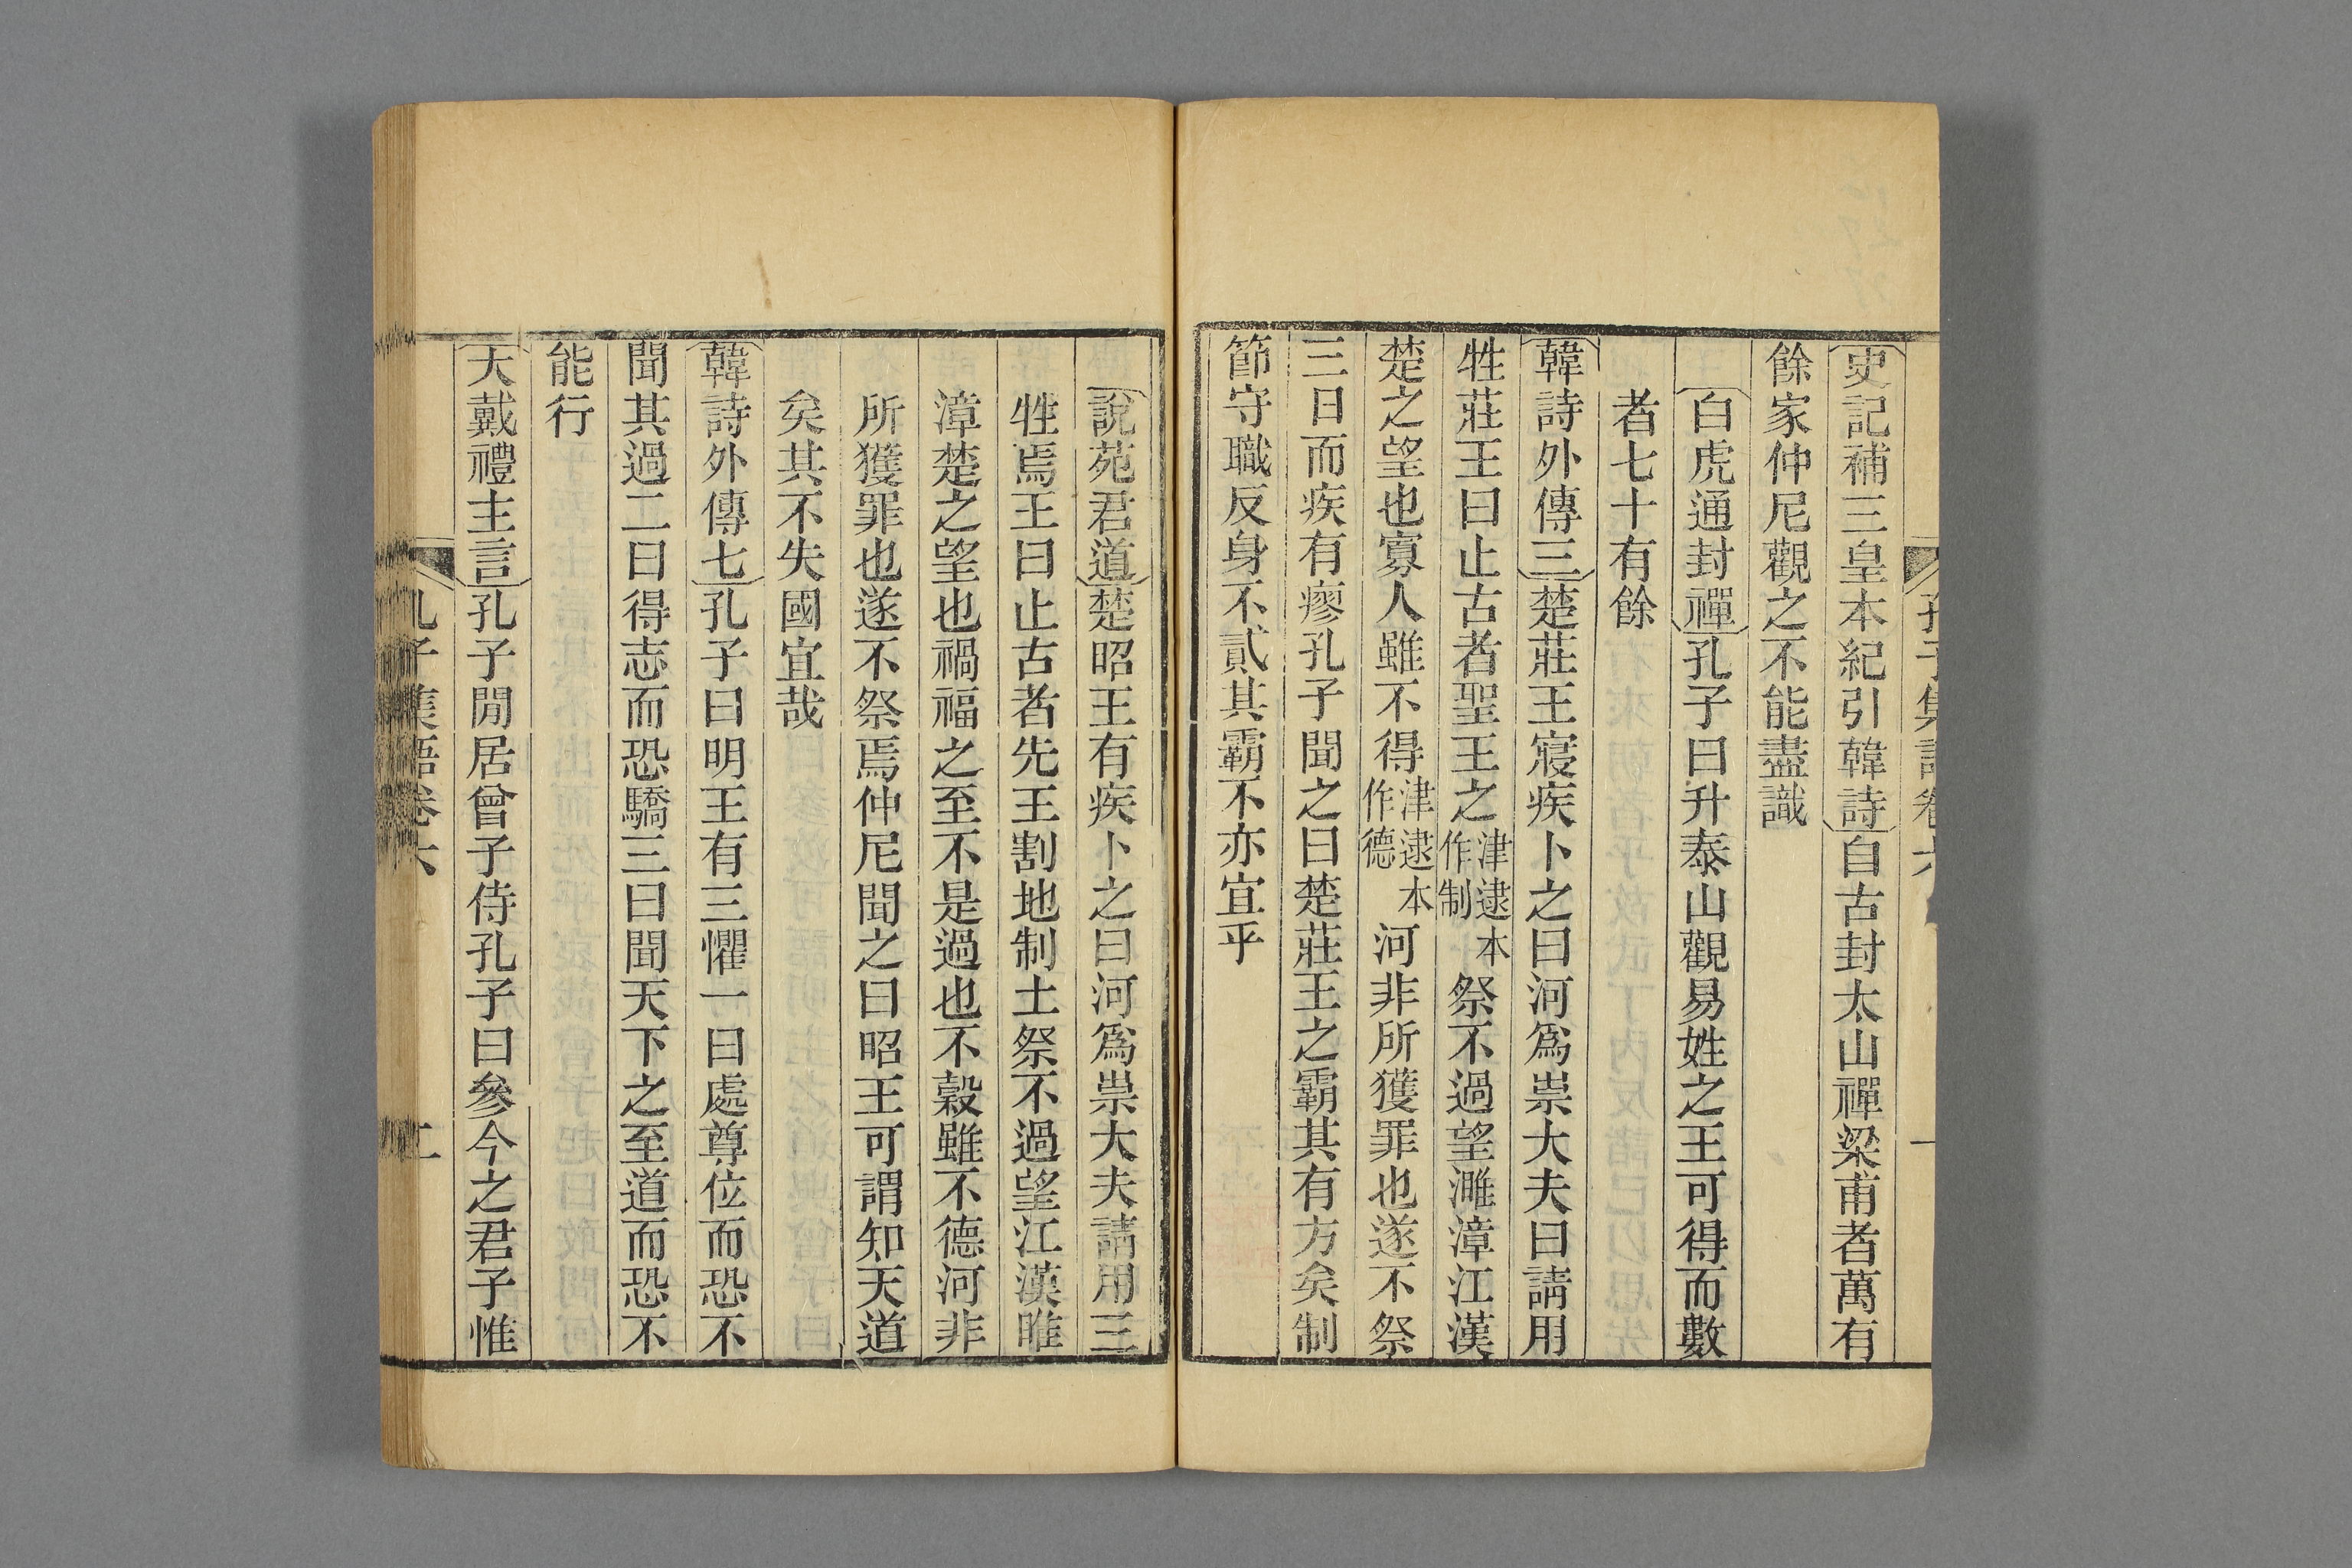 孔子集語卷六 一
史記補三皇本紀引韓詩自古封太山禪梁甫者萬有
餘家仲尼觀之不能盡識
白虎通封禪孔子曰升泰山觀易姓之王可得而數
者七十有餘
韓詩外傳三楚莊王寢疾卜之曰河爲祟大夫曰請用
牲莊王曰止古者聖王之津逮本作制祭不過望濉漳江漢
楚之望也寡人雖不得津逮本作德河非所獲罪也遂不祭
三日而疾有瘳孔子聞之曰楚莊王之霸其有方矣制
節守職反身不貳其霸不亦宜乎
說苑君道楚昭王有疾卜之曰河爲祟大夫請用三
牲焉王曰止古者先王割地制土祭不過望江漢睢
漳楚之望也禍福之至不是過也不穀雖不德河非
所獲罪也遂不祭焉仲尼聞之曰昭王可謂知天道
矣其不失國宜哉
韓詩外傳七孔子曰明王有三懼一曰處尊位而恐不
聞其過二曰得志而恐驕三曰聞天下之至道而恐不
能行
大戴禮主言孔子閒居曾子侍孔子曰參今之君子惟
孔子集語卷六 二